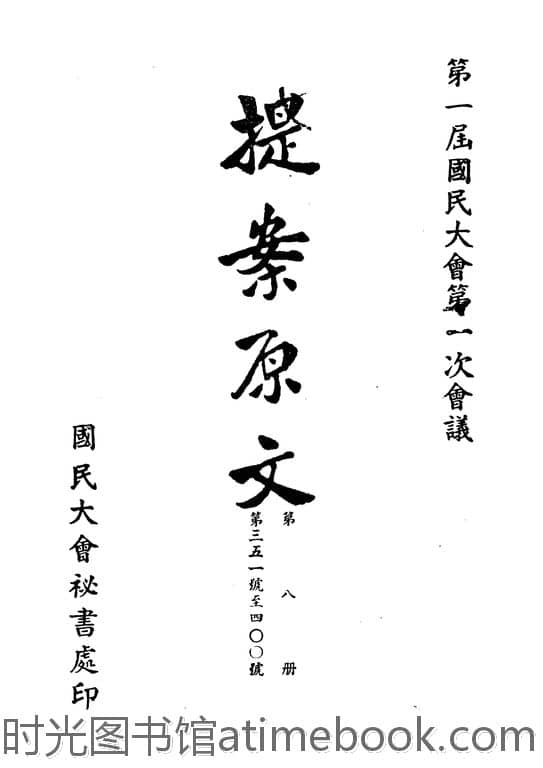 第一屆國民大會第一次會議
提案原文
第八册
第三五一號至四〇〇號
國民大會祕書處印
时光图书馆atimebook.com